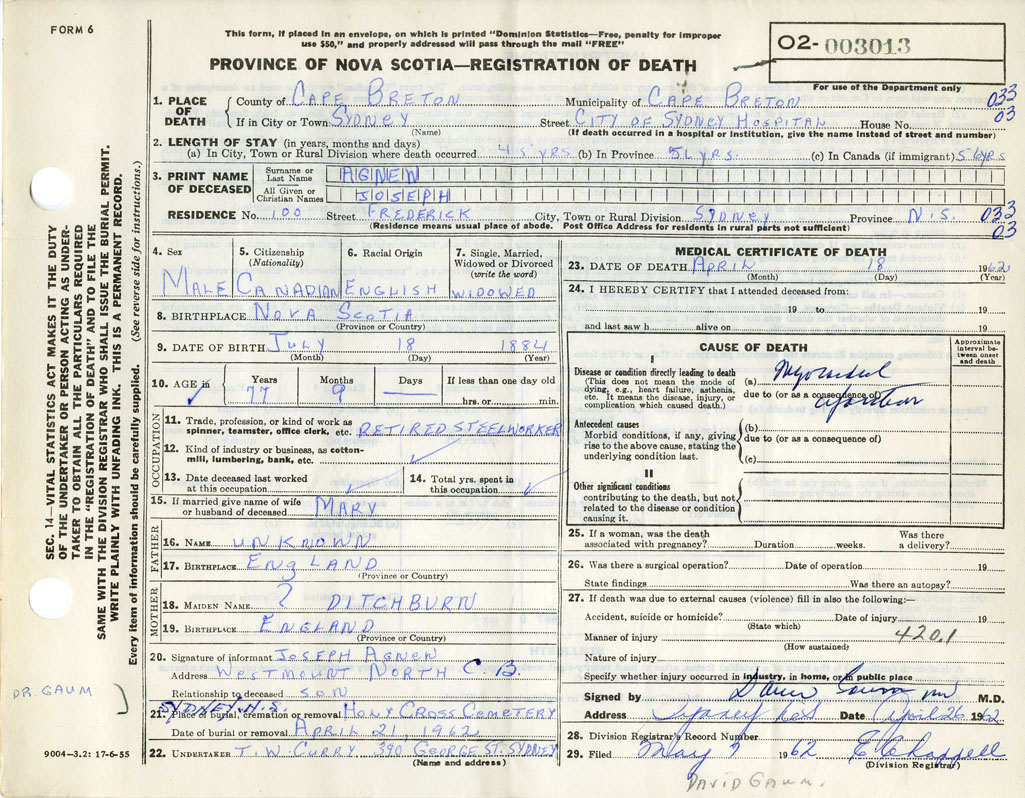 FORM 6
This form, if placed in an envelope, on which is printed "Dominion Statistics—Free, penalty for improper
use $50," and properly addressed will pass through the mail "FREE"
PROVINCE OF NOVA SCOTIA—REGISTRATION OF DEATH
02-003013
For use of the Department only
1. PLACE OF DEATH County of CAPE BRETON Municipality of CAPE BRETON 033
If in City or Town SYDNEY Street CITY OF SYDNEY HOSPITAL House No. 03
(Name) (If death occurred in a hospital or institution, give the name instead of street and number)
2. LENGTH OF STAY (in years, months and days)
(a) In City, Town or Rural Division where death occurred 45 yrs (b) In Province 51 yrs. (c) In Canada (if immigrant) 56 yrs
3. PRINT NAME OF DECEASED
Surname or Last Name AGNEW
All Given or Christian Names JOSEPH
RESIDENCE No. 100 Street FREDERICK City, Town or Rural Division SYDNEY Province N.S. 033
(Residence means usual place of abode. Post Office Address for residents in rural parts not sufficient) 03
4. Sex
MALE
5. Citizenship (Nationality)
CANADIAN
6. Racial Origin
ENGLISH
7. Single, Married, Widowed or Divorced (write the word)
WIDOWED
8. BIRTHPLACE NOVA SCOTIA
(Province or Country)
9. DATE OF BIRTH JULY 18 1884
(Month) (Day) (Year)
10. AGE in Years 77 Months 9 Days — If less than one day old
hrs. or min.
OCCUPATION
11. Trade, profession, or kind of work as
spinner, teamster, office clerk, etc. RETIRED STEELWORKER
12. Kind of industry or business, as cotton-
mill, lumbering, bank, etc.
13. Date deceased last worked
at this occupation
14. Total yrs. spent in
this occupation
15. If married give name of wife
or husband of deceased MARY
FATHER
16. NAME UNKNOWN
17. BIRTHPLACE ENGLAND
(Province or Country)
MOTHER
18. MAIDEN NAME ? DITCHBURN
19. BIRTHPLACE ENGLAND
(Province or Country)
20. Signature of informant JOSEPH AGNEW
Address WESTMOUNT NORTH C.B.
Relationship to deceased SON
SYDNEY, N.S.
21. Place of burial, cremation or removal HOLY CROSS CEMETERY
Date of burial or removal APRIL 21, 1962
22. UNDERTAKER T.W. CURRY 390 GEORGE ST. SYDNEY
(Name and address)
MEDICAL CERTIFICATE OF DEATH
23. DATE OF DEATH APRIL 18 1962
(Month) (Day) (Year)
24. I HEREBY CERTIFY that I attended deceased from:
19 to 19
and last saw h alive on 19
CAUSE OF DEATH
Approximate interval between onset and death
I
Disease or condition directly leading to death
(This does not mean the mode of
dying, e.g., heart failure, asthenia,
etc. It means the disease, injury, or
complication which caused death.)
(a) Myocardial
due to (or as a consequence of)
infarction
Antecedent causes
Morbid conditions, if any, giving
rise to the above cause, stating the
underlying condition last.
(b)
due to (or as a consequence of)
(c)
II
Other significant conditions
contributing to the death, but not
related to the disease or condition
causing it.
25. If a woman, was the death
associated with pregnancy? Duration weeks. Was there a delivery?
26. Was there a surgical operation? Date of operation 19
State findings Was there an autopsy?
27. If death was due to external causes (violence) fill in also the following:—
Accident, suicide or homicide? Date of injury 19
(State which)
Manner of injury 420.1
(How sustained)
Nature of injury
Specify whether injury occurred in industry, in home, or in public place
Signed by David Gaum MD M.D.
Address Sydney N.S. Date April 26 1962
28. Division Registrar's Record Number
29. Filed May 7 1962 E Chappell
(Division Registrar)
DAVID GAUM.
SEC. 14—VITAL STATISTICS ACT MAKES IT THE DUTY
OF THE UNDERTAKER OR PERSON ACTING AS UNDER-
TAKER TO OBTAIN ALL THE PARTICULARS REQUIRED
IN THE "REGISTRATION OF DEATH" AND TO FILE THE
SAME WITH THE DIVISION REGISTRAR WHO SHALL ISSUE THE BURIAL PERMIT.
WRITE PLAINLY WITH UNFADING INK. THIS IS A PERMANENT RECORD.
Every item of information should be carefully supplied. (See reverse side for instructions.)
DR. GAUM
9004—3.2: 17-6-55